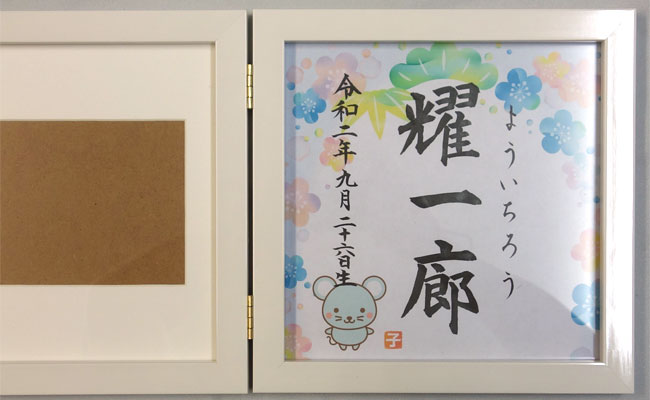 よういちろう
耀一廊
令和二年九月二十六日生
子